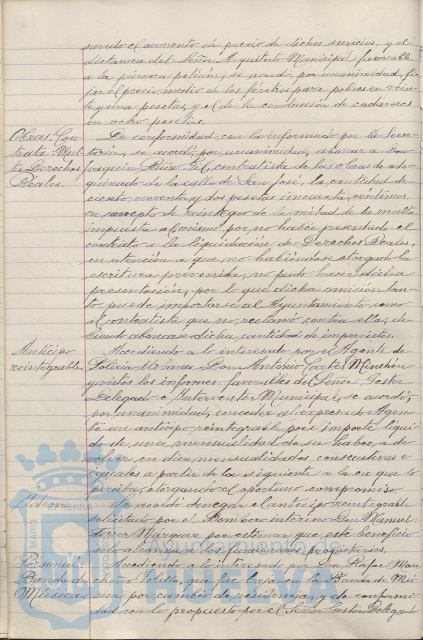 sando el aumento de precio de dichos servicios, y el
dictamen del Señor Arquitecto Municipal favorable
a la primera petición, se acordó, por unanimidad, fi-
jar el precio medio de los féretros para pobres en vein-
te y una pesetas, y el de la conducción de cadáveres
en ocho pesetas.
Obras. Con-
trata: Mul-
ta Derechos
Reales.
De conformidad con lo informado por la Secre-
taría, se acordó, por unanimidad, abonar a Don
Joaquín contratista de las obras de ado-
quinado de la calle de San José, la cantidad de
ciento noventa y dos pesetas cincuenta céntimos,
en concepto de reintegro de la mitad de la multa
impuesta al mismo por no haber presentado el
contrato a la liquidación de Derechos Reales,
en atención a que no habiéndose otorgado la
escritura prevenida, no pudo hacer dicha
presentación, por lo que dicha omisión tan-
to puede importarse al Ayuntamiento como
al contratista que no reclamó contra ella, de-
biendo abonarse dicha cantidad de imprevistos.
Anticipo
reintegrable
Accediendo a lo interesado por el Agente de
Policía Urbana Don Antonio Cortés Minchón
y vistos los informes favorables del Señor Gestor
Delegado e Interventor Municipal, se acordó,
por unanimidad, conceder al expresado Agen-
te un anticipo reintegrable por importe líqui-
do de una mensualidad de su haber, a de-
volver en diez mensualidades consecutivas e
iguales a partir de la siguiente a la en que lo
perciba, otorgando el oportuno compromiso.
Idem
Se acordó denegar el anticipo reintegrable
solicitado por el Bombero interino Don Manuel
Márquez por estimar que este beneficio
sólo alcanza a los funcionarios propietarios.
Personal:
Banda de
Música
Accediendo a lo interesado por Don Rafael Man-
cheño Tolello, que fue baja en la Banda de Mú-
sica por cambio de residencia, y de conformi-
dad con lo propuesto por el Señor Gestor Delegado